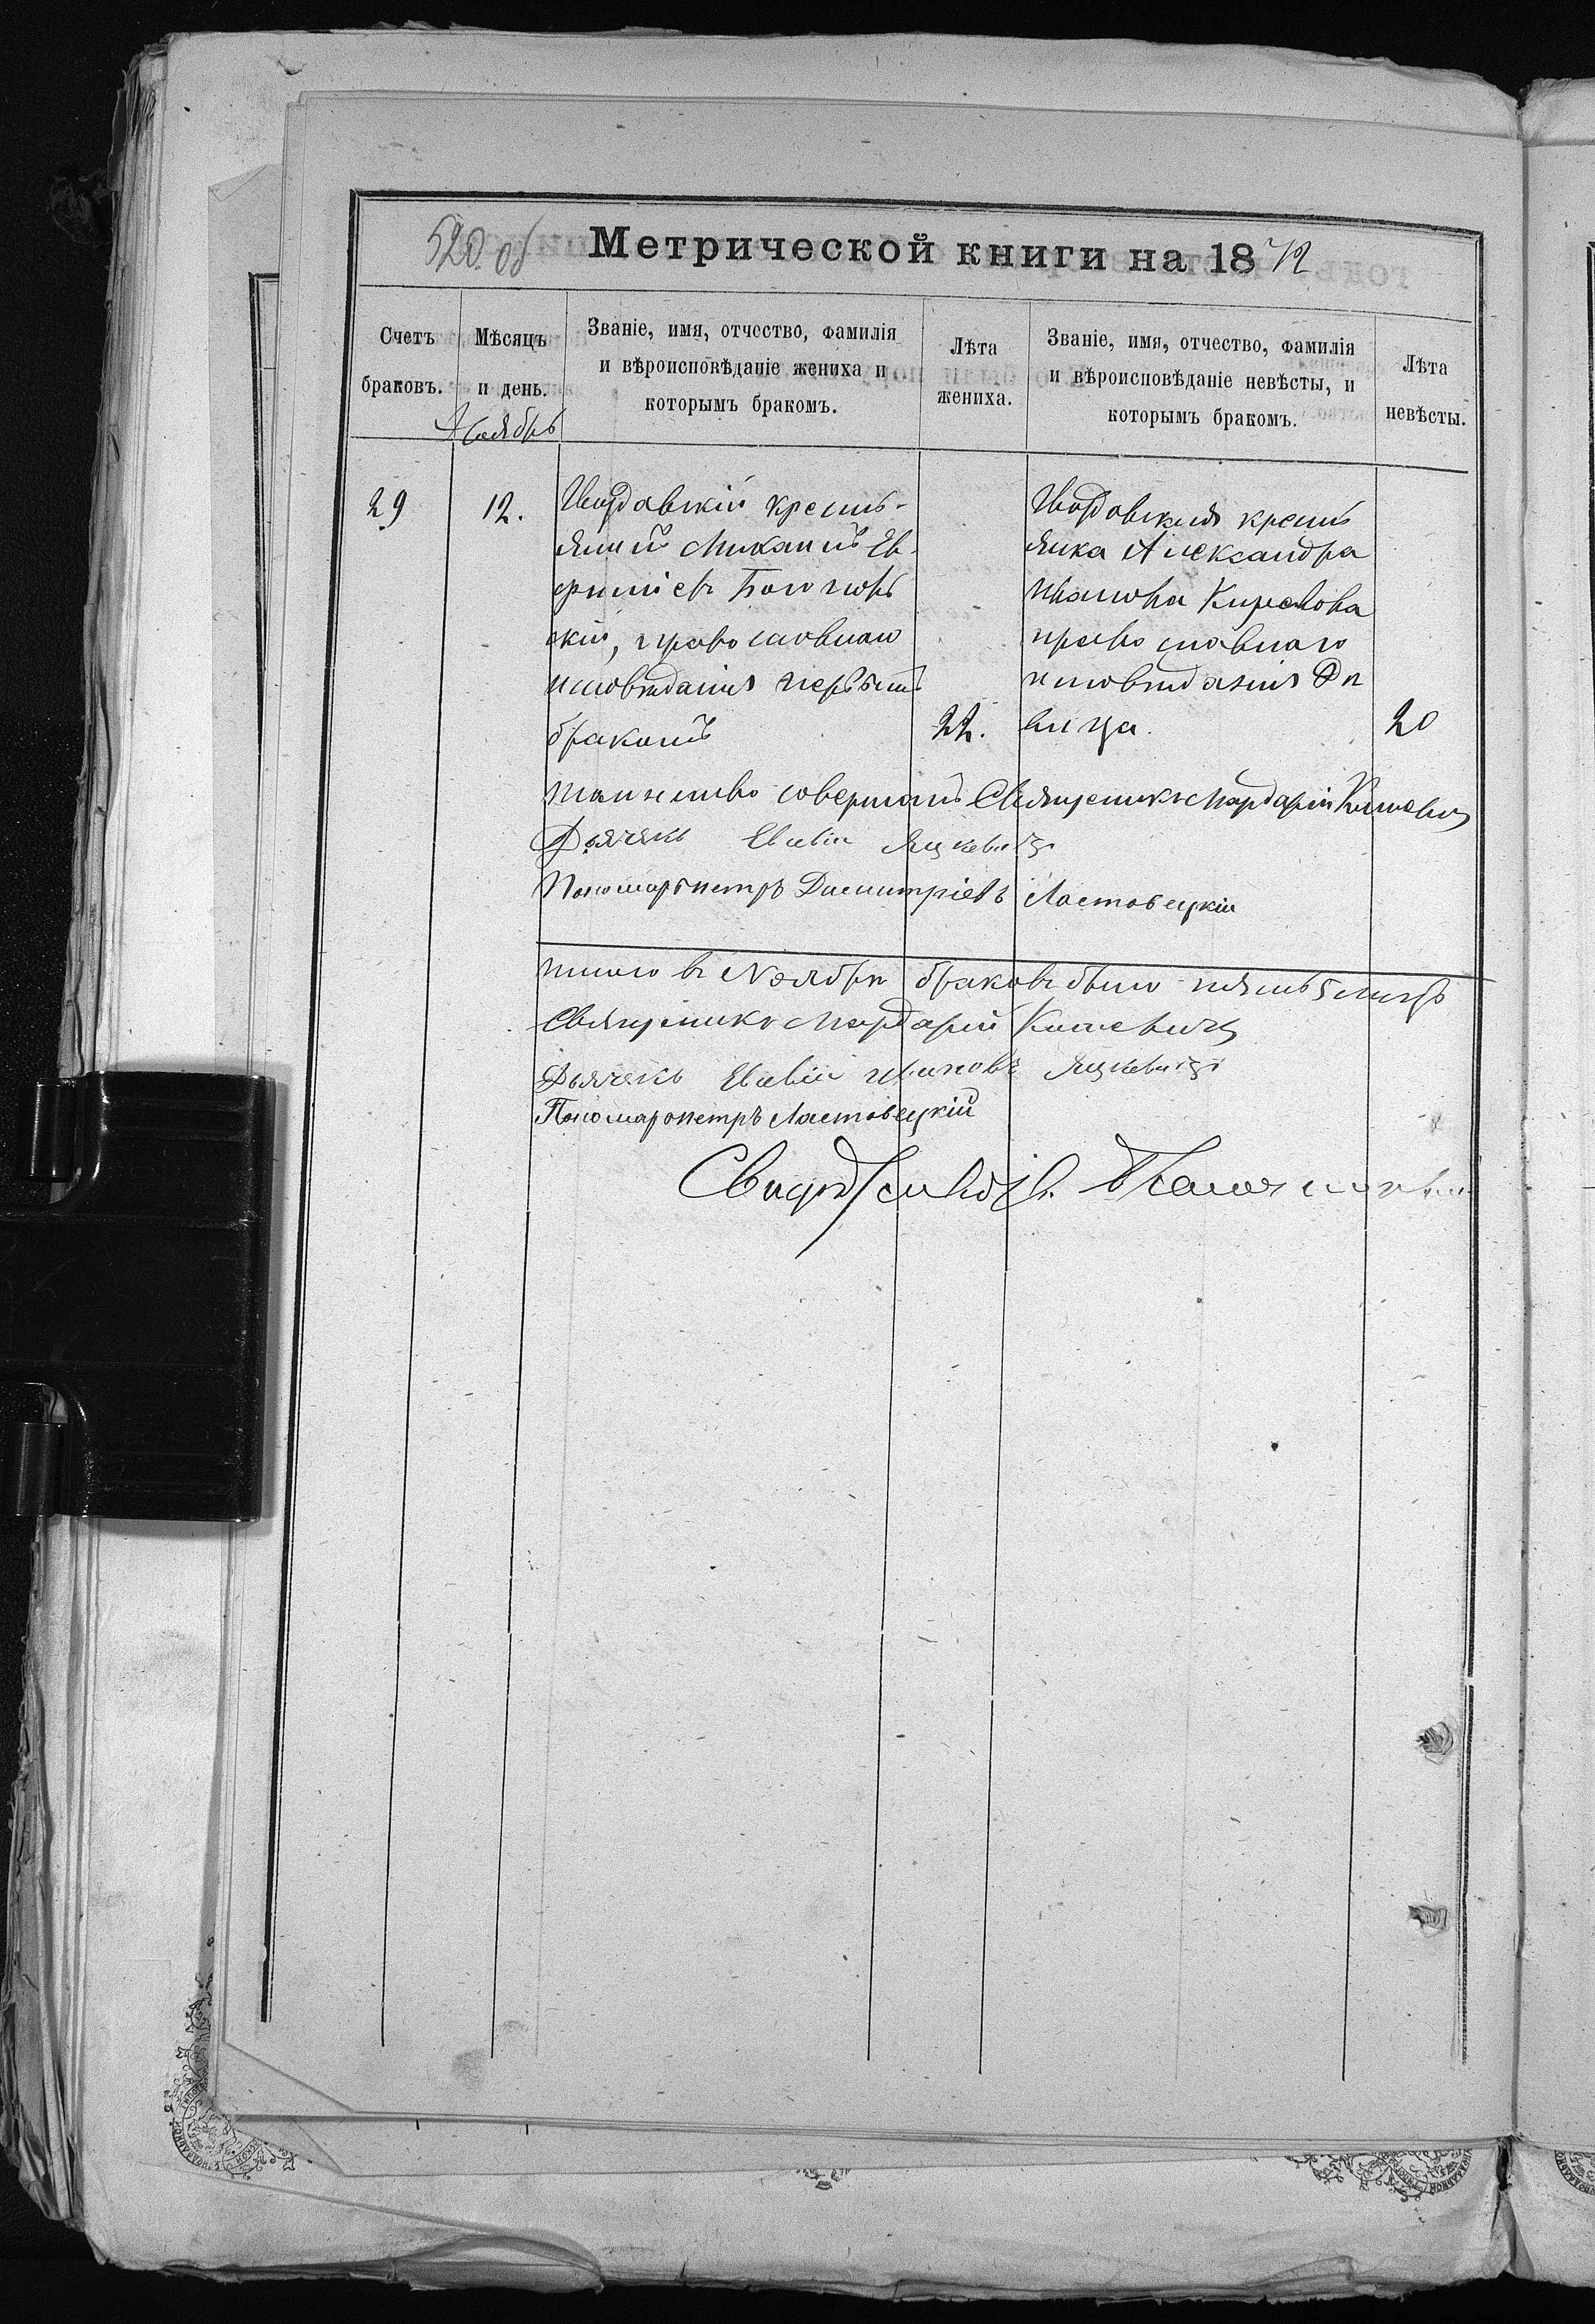 520 об
Метрической книги на 1872
Счетъ браковъ.
Мѣсяцъ и день.
Званіе, имя, отчество, фамилія и вѣроисповѣданіе жениха и которымъ бракомъ.
Лѣта жениха.
Званіе, имя, отчество, фамилія и вѣроисповѣданіе невѣсты, и которымъ бракомъ.
Лѣта невѣсты.
Ноябрь
29
12.
кресть-
янинъ Михаилъ Ев-
фиміевъ
скій, православнаго
исповѣданія первымъ
бракомъ
22.
кресть
янка Александра
Иванова Кирилова
православнаго
исповѣданія Дѣ
вица.
20
таинство совершалъ Священникъ Мардарій
Дьячекъ Евсевій Яцкевичъ
Пономарь Петръ Димитріевъ Ластовецкій
Итого въ Ноябрѣ браковъ было пять 5 лицъ
Священникъ Мардарій
Дьячекъ Евсевій Ивановъ Яцкевичъ
Пономарь Петръ Ластовецкій